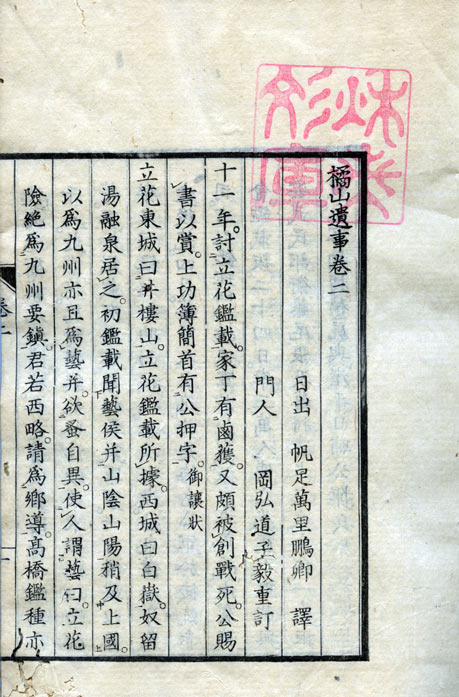 橘山遺事卷二
日出 帆足萬里鵬卿 譯
門人 岡弘道子毅重訂
十一年討立花鑑載家丁有鹵獲又頗被創戰死公賜
書以賞上功簿簡首有公押字御讓狀
立花東城曰井樓山立花鑑載所據西城曰白嶽奴留
湯融泉居之初鑑載聞藝侯并山陰山陽稍及上國
以爲九州亦且爲藝并欲蚤自異使人謂藝曰立花
險絶爲九州要鎭君若西略請爲鄉導高橋鑑種亦
卷二